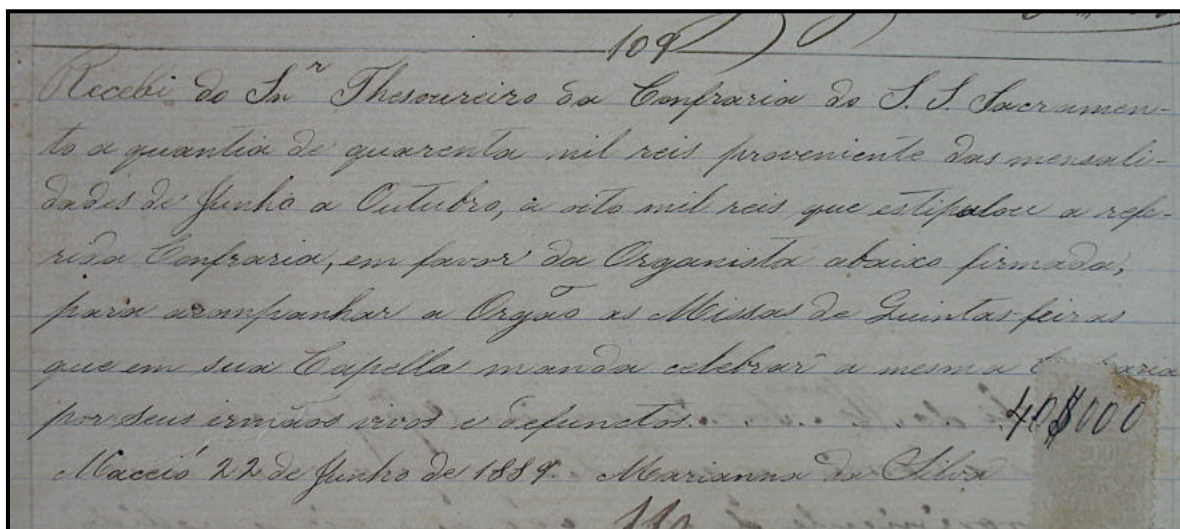 109
Recebi do Snr Thesoureiro da Confraria do S. S. Sacramen-
to a quantia de quarenta mil reis proveniente das mensali-
dades de Junho a Outubro, a oito mil reis que estipulou a refe-
rida Confraria, em favor da Organista abaixo firmada,
para acompanhar a Orgão as Missas de Quintas-feiras
que em sua Capella manda celebrar a mesma
por seus irmãos vivos e defunctos. 40$000
Maceió 22 de Junho de 1889. Marianna da Silva
110